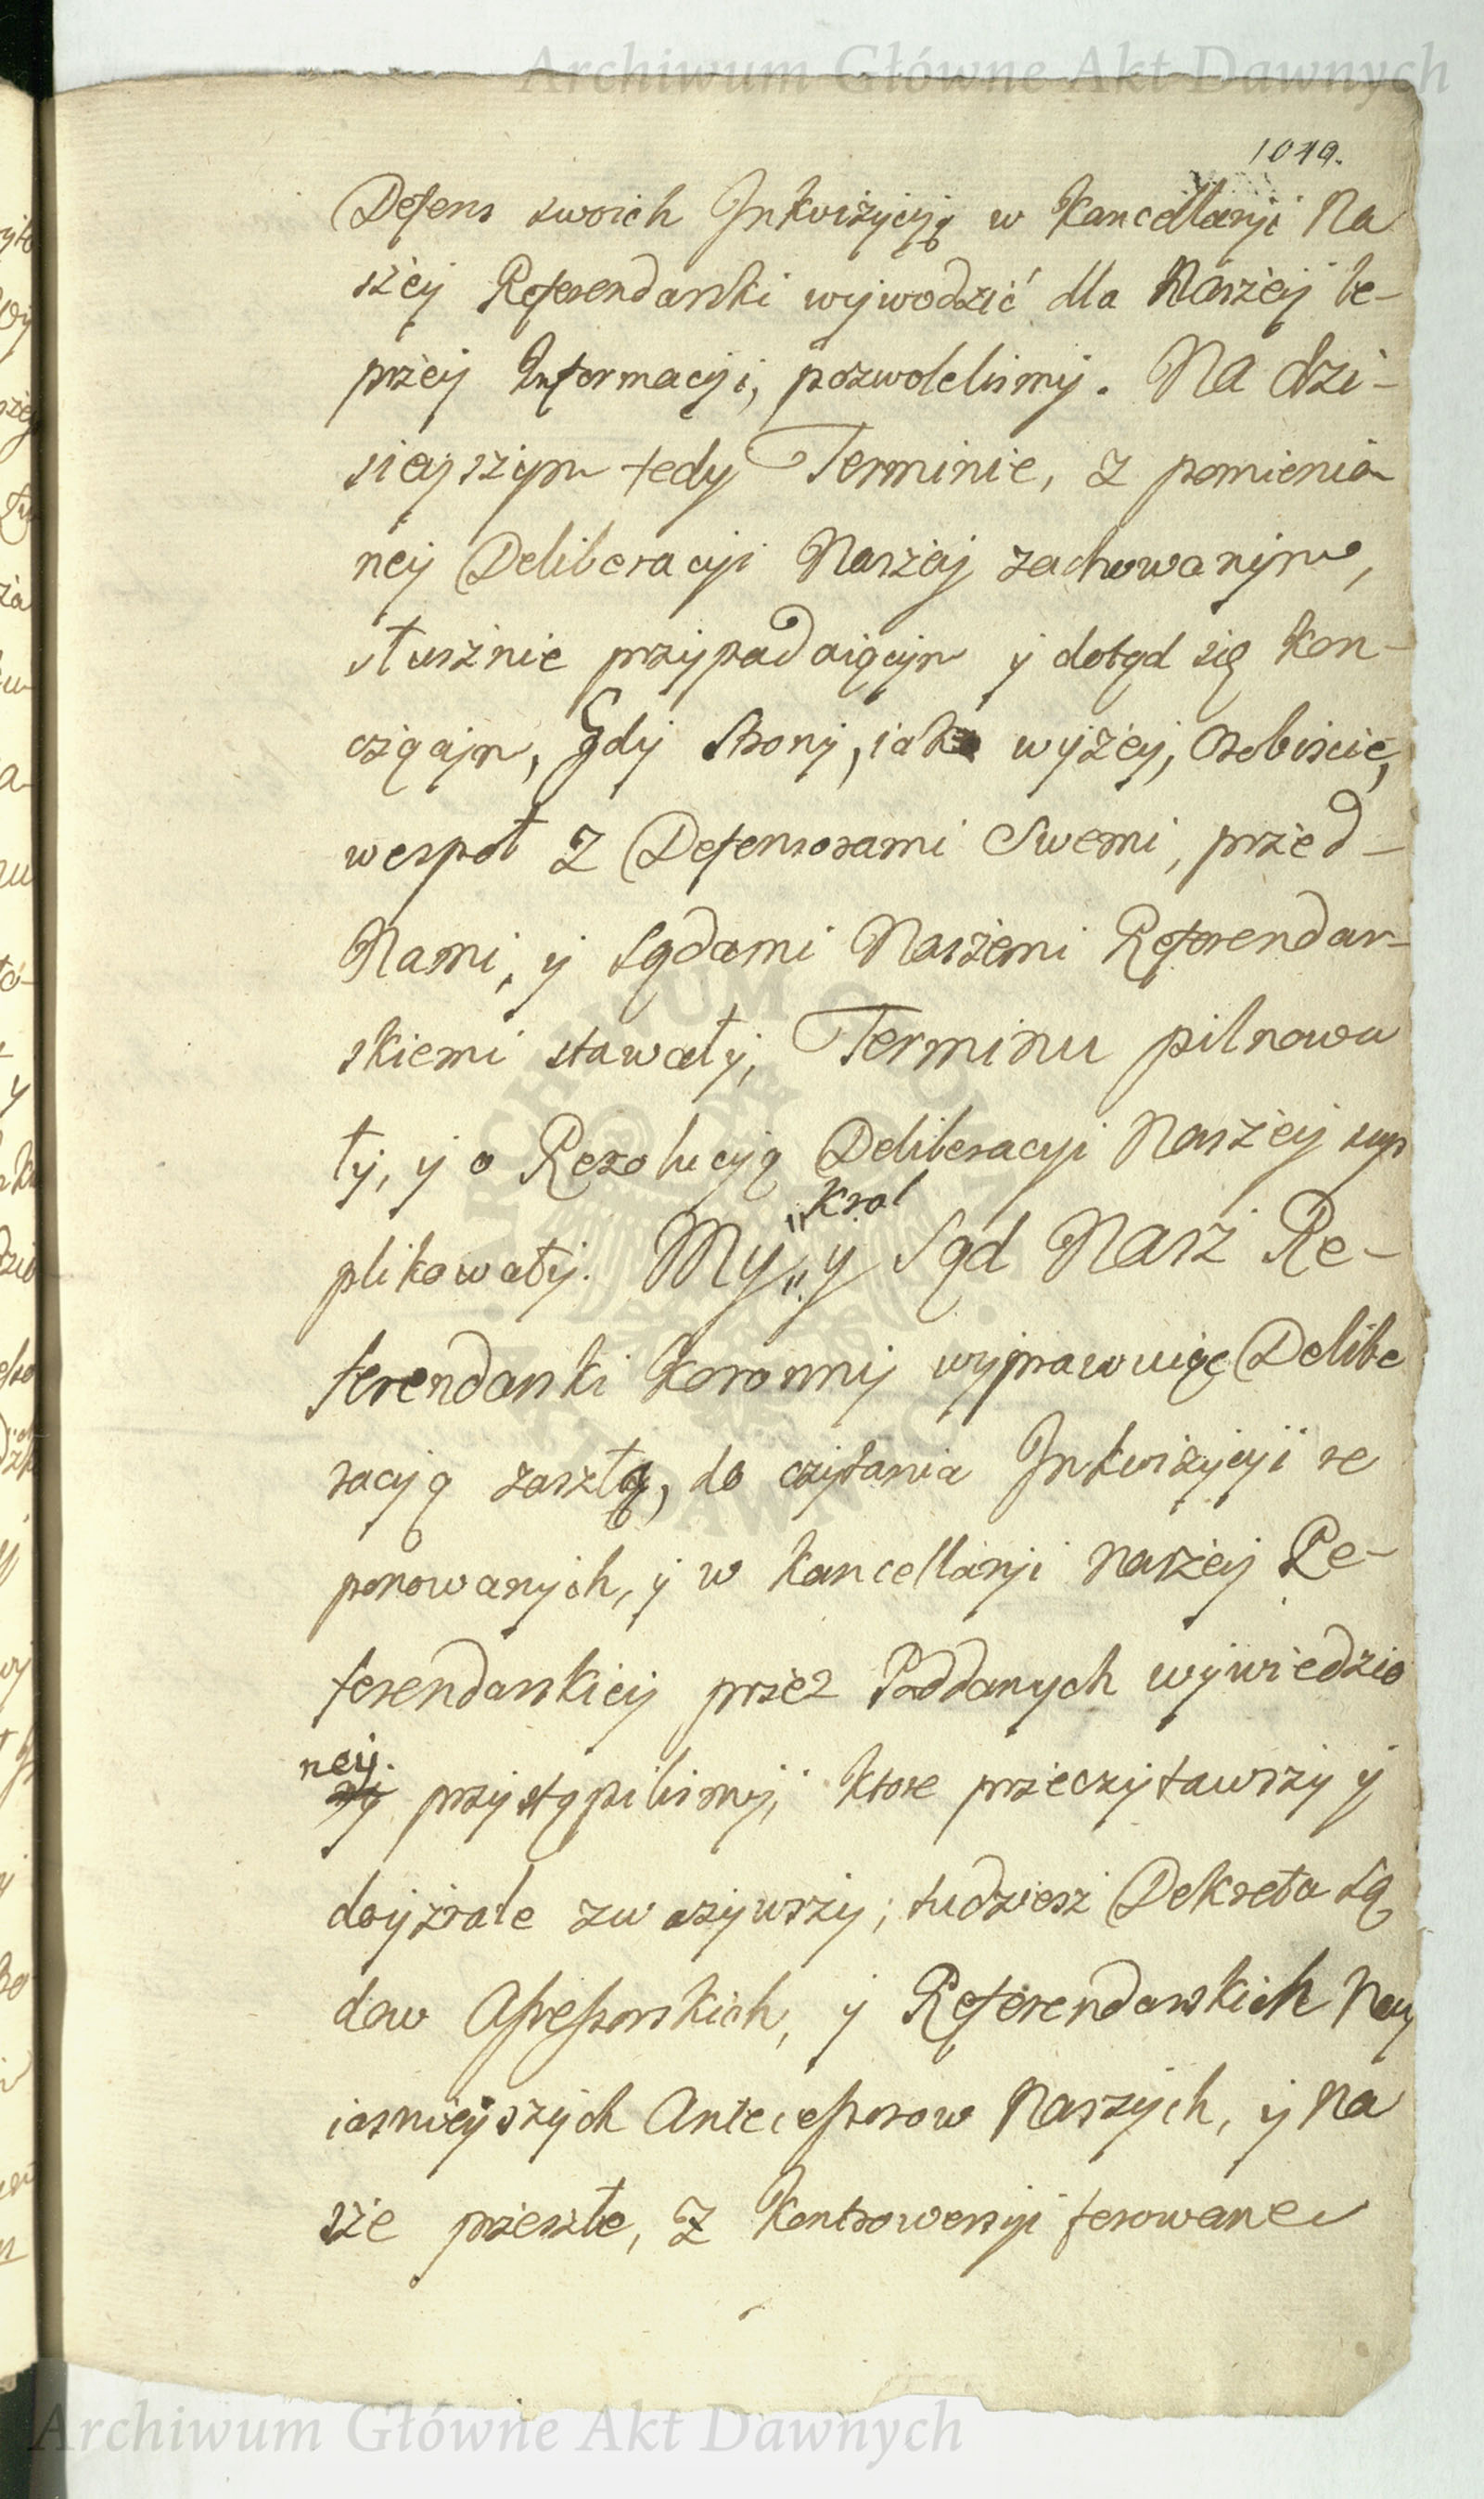 Archiwum Główne Akt Dawnych
1049.
Defens swoich Inkwizycyą w Kancellaryi Na
szey Referendarski wywodzić dla Naszey le-
przey Informacyi, pozwolelismy. Na dzi-
sieyszym tedy Terminie, z pomienio
ney Deliberacyi Naszey zachowanym,
słusznie przypadaiącym y dotąd się kon-
cząącym, Gdy Strony, iako wyzey, Osobiscie,
wespoł z Defensorami Swemi, przed-
Nami, y Sądami Naszemi Referendar-
skiemi stawały, Terminu pilnowa
ły, y o Rezolucyą Deliberacyi Naszey sup
Krol
plikowały. My y Sąd Nasz Re-
ferendarski Koronny wyprawuiąc Delibe
racyą zaszłą, do czytania Inkwizycyi re
ponowanych, y w Kancellaryi naszey Re-
ferendarskiey przez Poddanych wywiedzio
ney.
przystąpilismy, ktore przeczytawszy y
doyzrale zwazywszy; tudziesz Dekreta Są
dow Assessorskich, y Referendarskich Nay
iasnieyszych Antecessorow Naszych, y Na
sze przeszłe, z Kontrowersyi ferowane
ARCHIWUM GŁÓWNE AKT DAWNYCH
Archiwum Główne Akt Dawnych